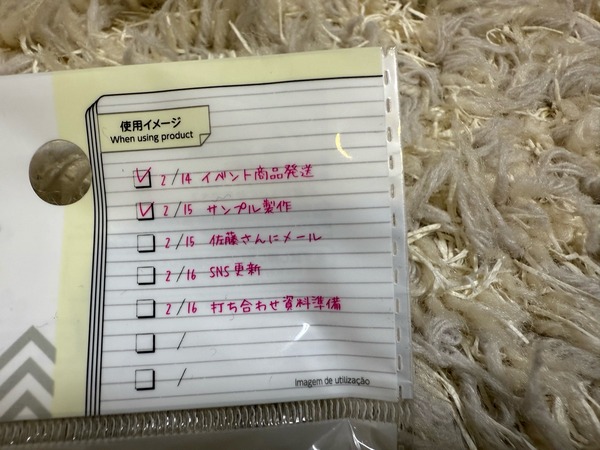 使用イメージ
When using product
2/14 イベント商品発送
2/15 サンプル製作
2/15 佐藤さんにメール
2/16 SNS更新
2/16 打ち合わせ資料準備
/
/
Imagem de utilização